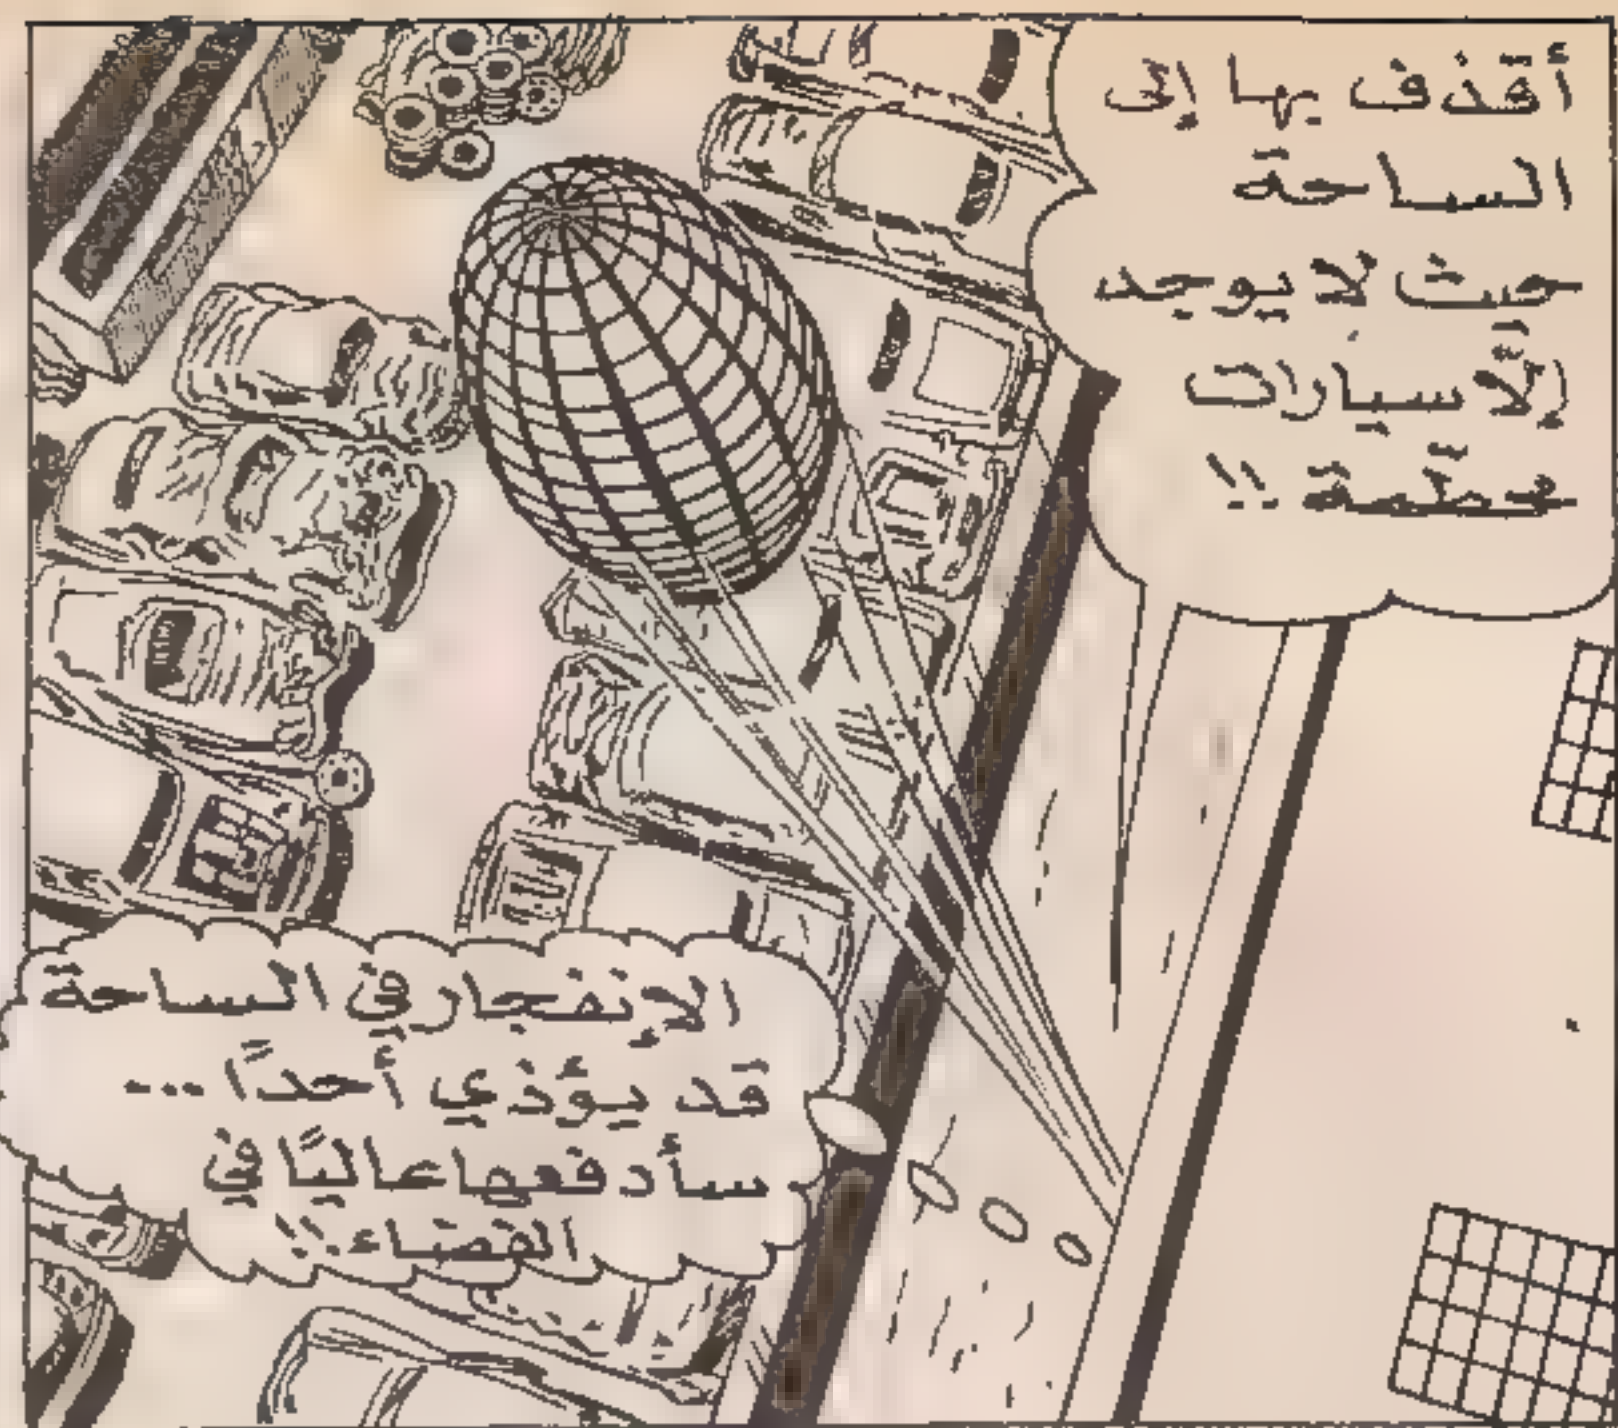 أقذف بها إلى
الساحة
حيث لا يوجد
إلّا سيارات
محطّمة !!
الإنفجار في الساحة
قد يؤذي أحدًا ...
سأدفعها عاليًا في
الفضاء !!